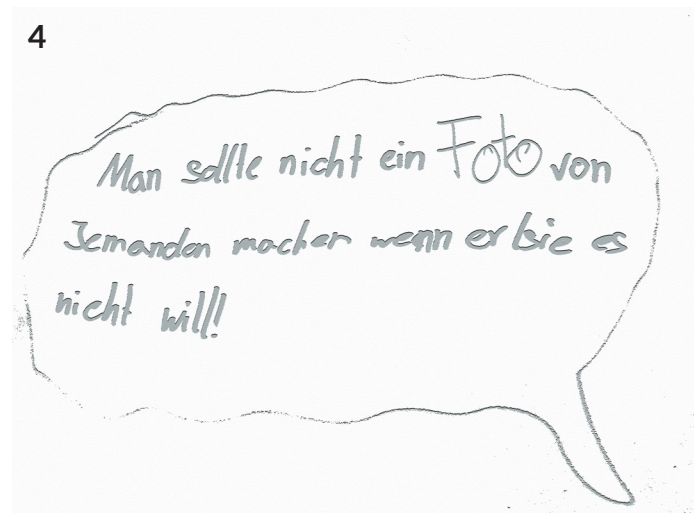 4
Man sollte nicht ein Foto von
Jemanden machen wenn er/sie es
nicht will!